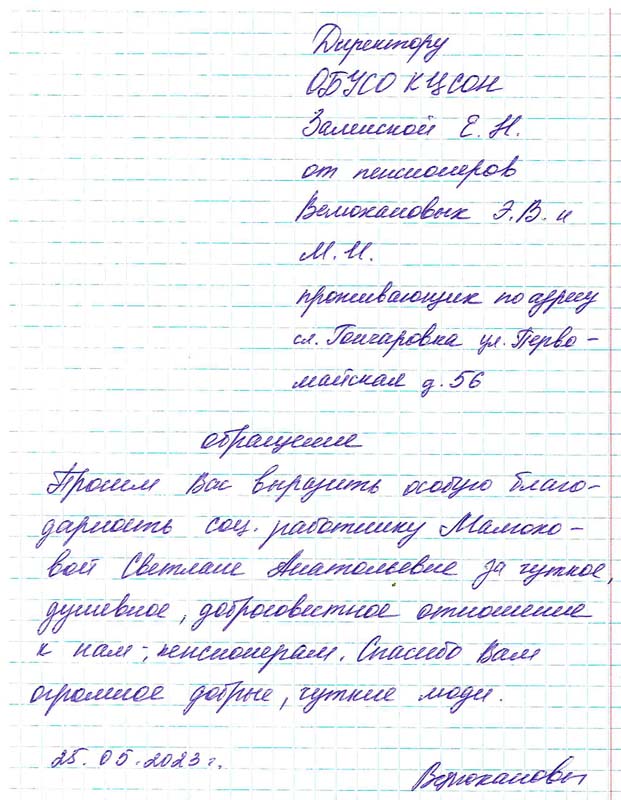 Директору
ОБУСО КЦСОН
Залисской Е. Н.
от пенсионеров
Велюхановых Э. В. и
М. И.
проживающих по адресу
сл. Гончаровка ул. Перво-
майская д. 56
обращение
Просим Вас выразить особую благо-
дарность соц. работнику Мамоно-
вой Светлане Анатольевне за чуткое,
душевное, добросовестное отношение
к нам -, пенсионерам. Спасибо Вам
огромное добрые, чуткие люди.
25. 05. 2023 г.